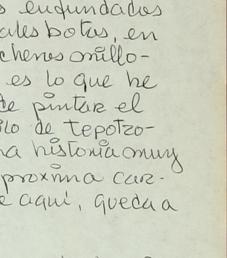 s enfundados
ales botas, en
chenos millo-
es lo que he
de pintar el
ilo de tepotzo-
na historia muy
proxima car-
e aquí, queda a